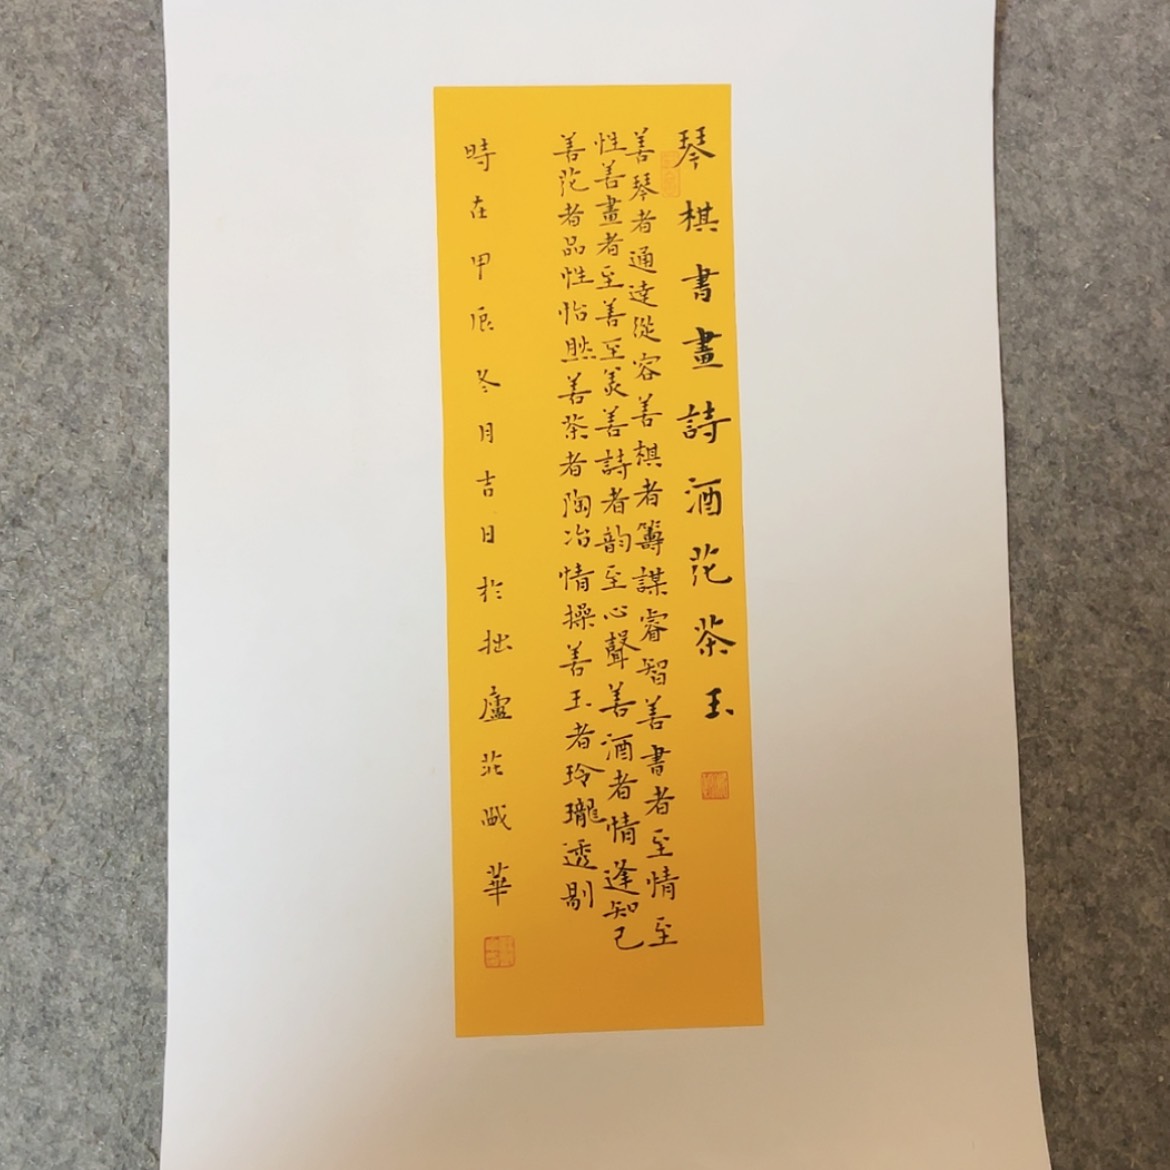 琴棋書畫詩酒花茶玉
善琴者通達從容善棋者籌謀睿智善書者至情至
性善畫者至善至美善詩者韵至心聲善酒者情逢知己
善花者品性怡然善茶者陶冶情操善玉者玲瓏透剔
時在甲辰冬月吉日於拙廬花盛華